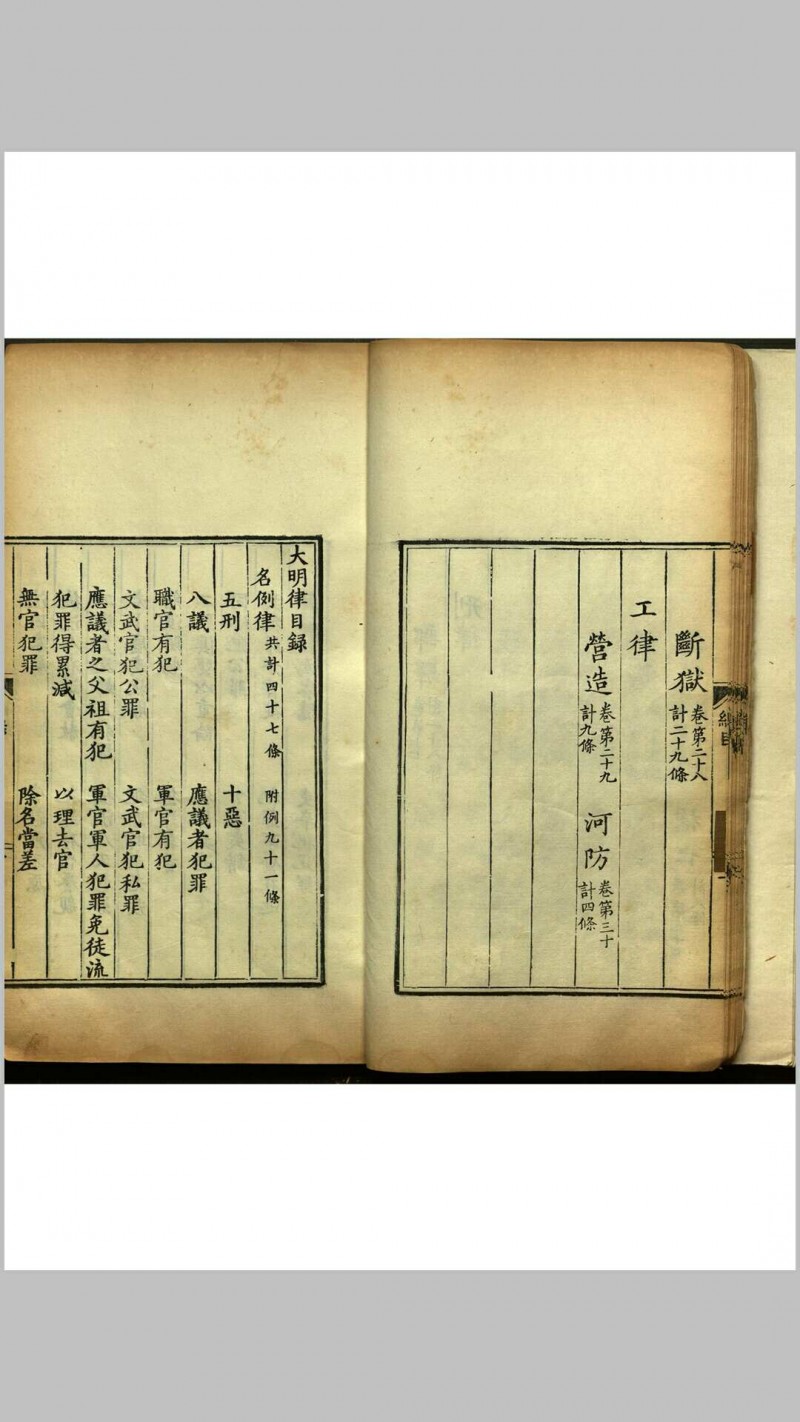 斷獄 卷第二十八 計二十九條
工律
營造 卷第二十九 計九條 河防 卷第三十 計四條
大明律目錄
名例律 共計四十七條 附例九十一條
五刑 十惡
八議 應議者犯罪
職官有犯 軍官有犯
文武官犯公罪 文武官犯私罪
應議者之父祖有犯 軍官軍人犯罪免徒流
犯罪得累減 以理去官
無官犯罪 除名當差